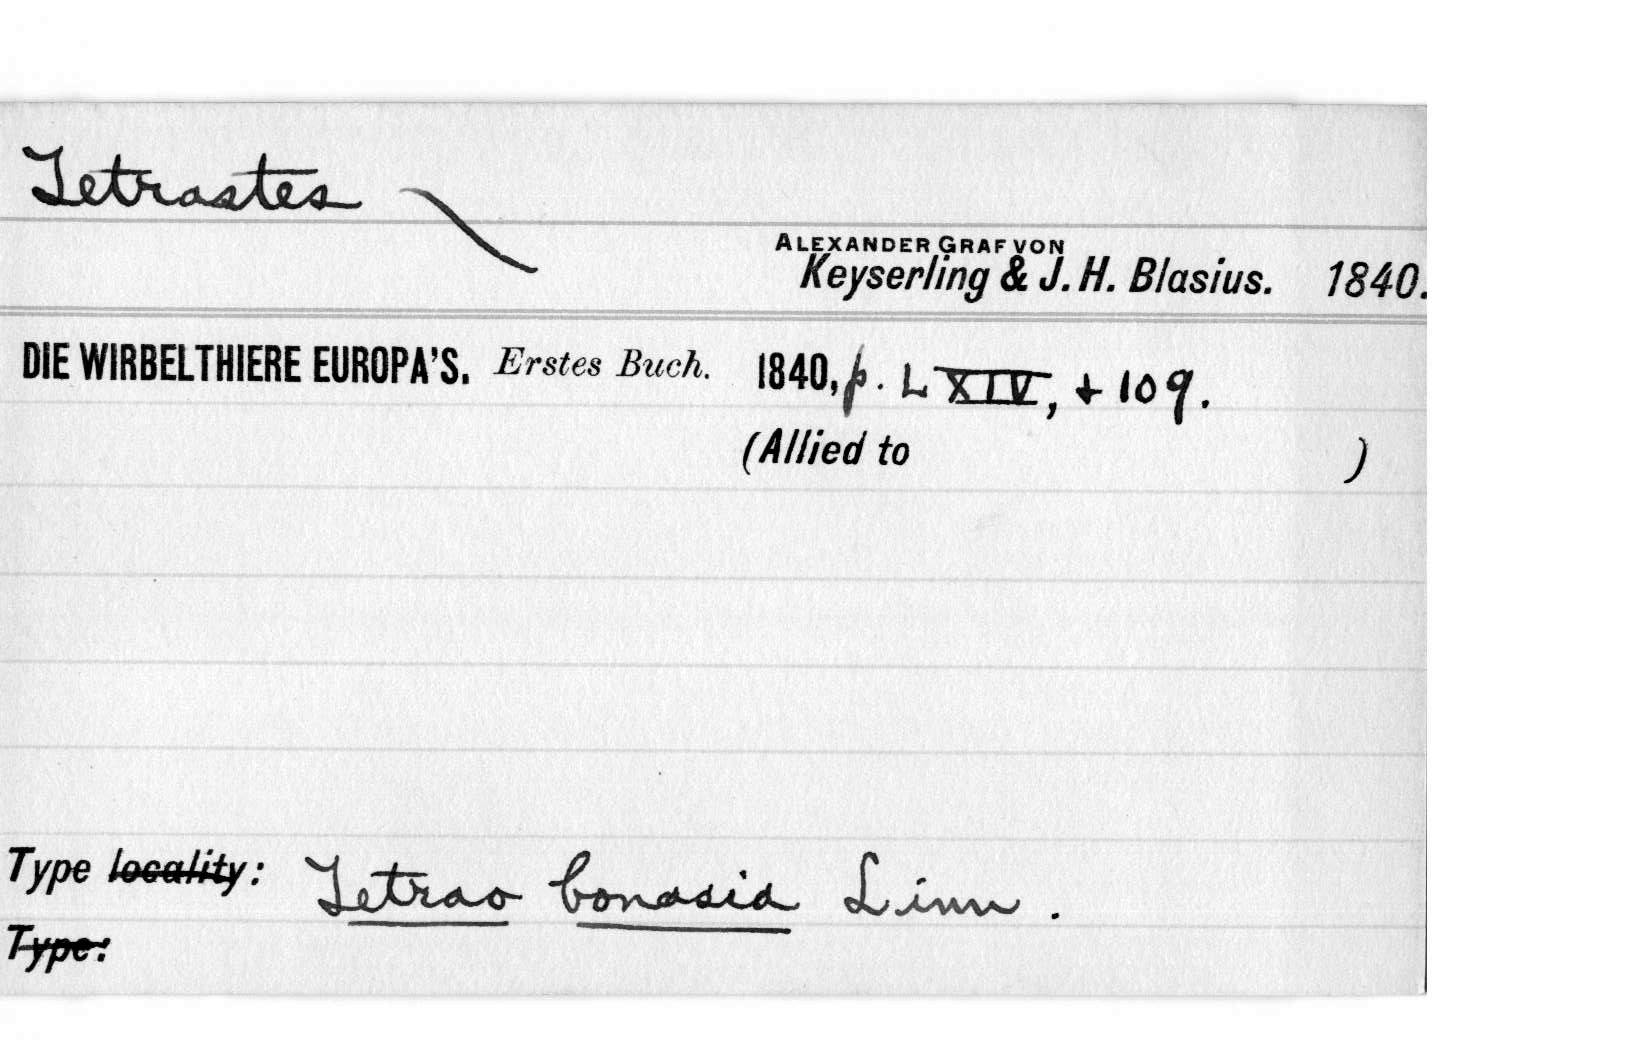 Tetrastes
ALEXANDER GRAF VON
Keyserling & J. H. Blasius. 1840.
DIE WIRBELTHIERE EUROPA'S. Erstes Buch. 1840, p. LXIV, + 109.
(Allied to )
Type locality: Tetrao bonasia Linn.
Type: